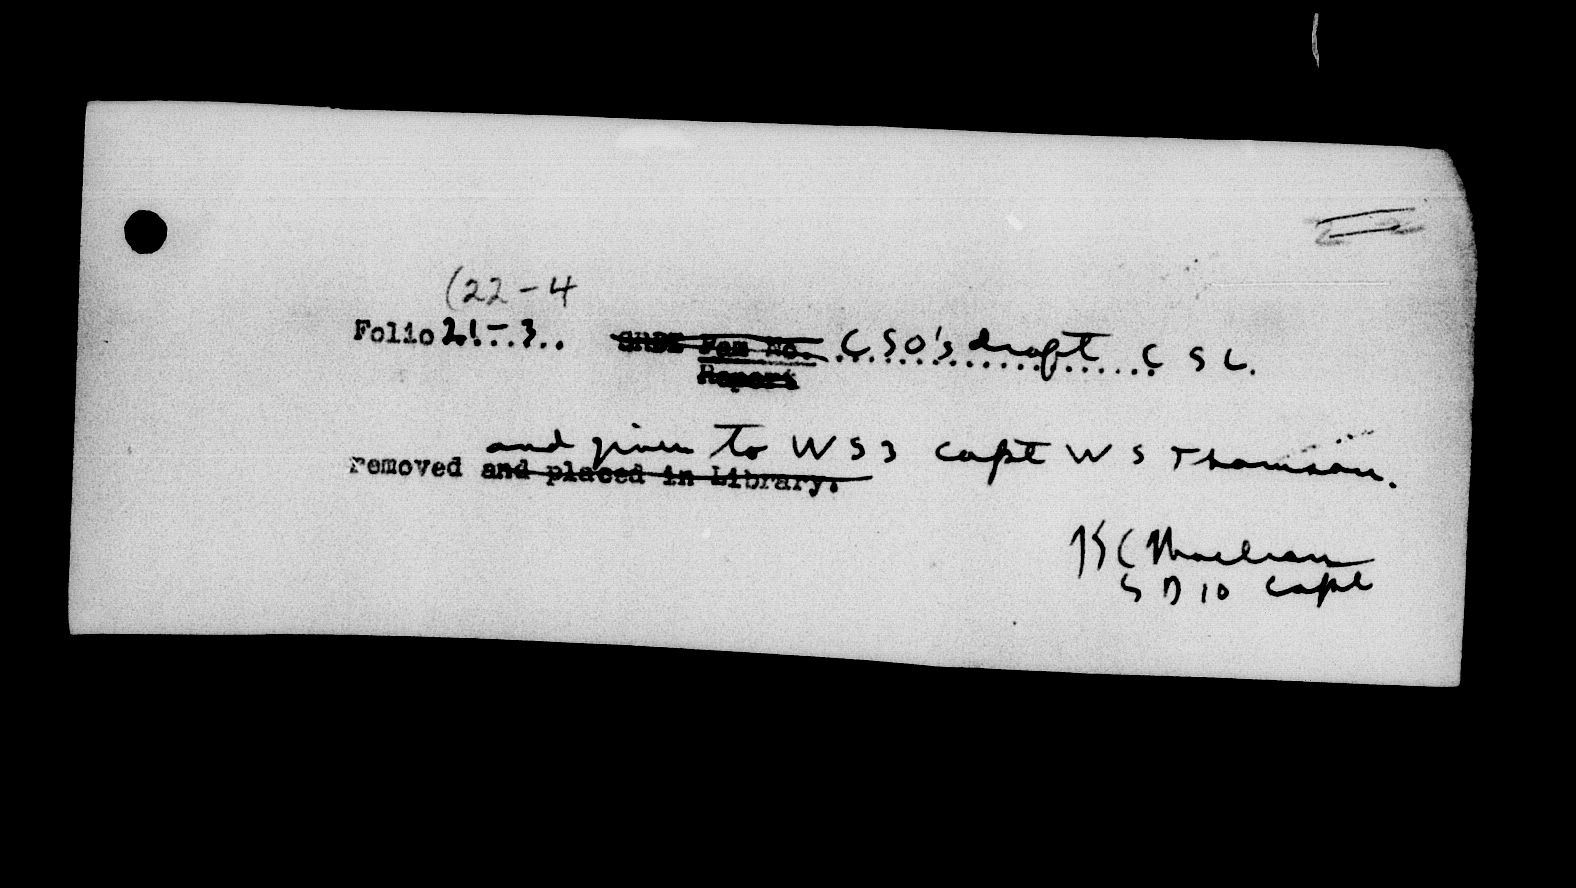 (22-4
Folio 21-3.. Mem No. CSO's draft C S C.
Report
and given to W S 3 Capt W S Thomson.
removed and placed in Library.
K C Maclean
S D 10 Capt